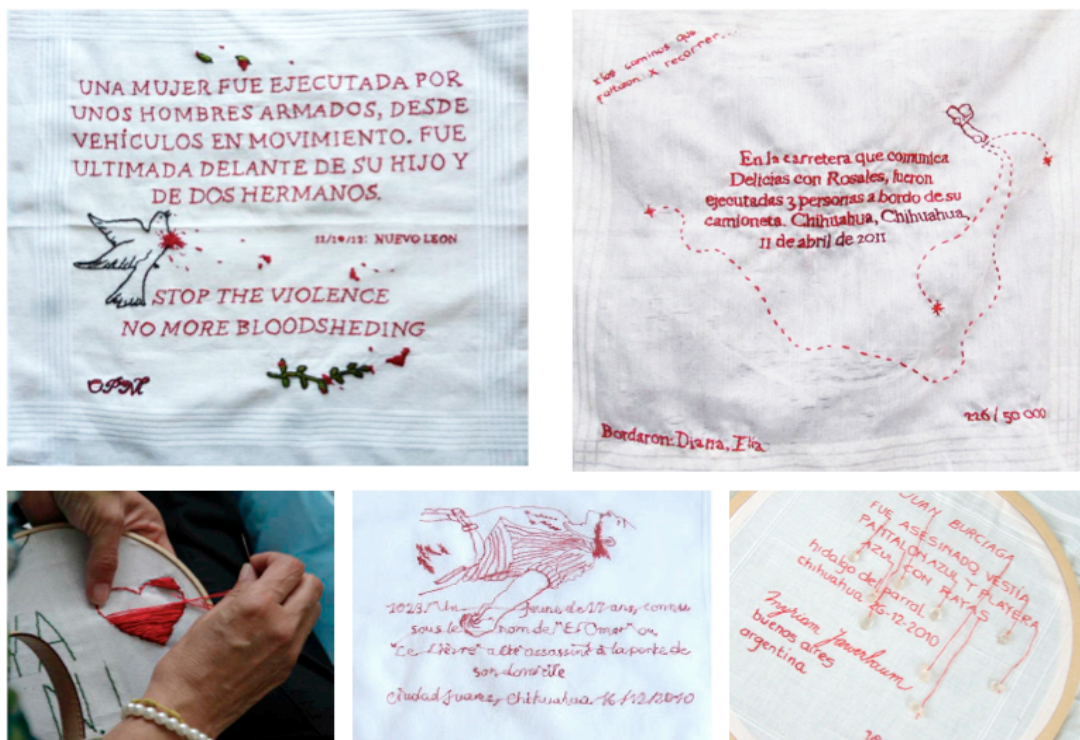 UNA MUJER FUE EJECUTADA POR
UNOS HOMBRES ARMADOS, DESDE
VEHÍCULOS EN MOVIMIENTO. FUE
ULTIMADA DELANTE DE SU HIJO Y
DE DOS HERMANOS.
11/10/12: NUEVO LEON
STOP THE VIOLENCE
NO MORE BLOODSHEDING
OPM
x los caminos que
faltaron x recorrer...
En la carretera que comunica
Delicias con Rosales, fueron
ejecutadas 3 personas a bordo de su
camioneta. Chihuahua, Chihuahua,
11 de abril de 2011
226/50 000
Bordaron: Diana, Elia
LA
N
1028. Un jeune de 17 ans, connu
sous le nom de "El Omar" ou
"Le Lièvre" a été assassiné à la porte de
son domicile
Ciudad Juarez, Chihuahua 16/12/2010
JUAN BURCIAGA
FUE ASESINADO, VESTÍA
PANTALON AZUL Y PLAYERA
AZUL CON RAYAS
hidalgo del parral
chihuahua 26-12-2010
buenos aires
argentina